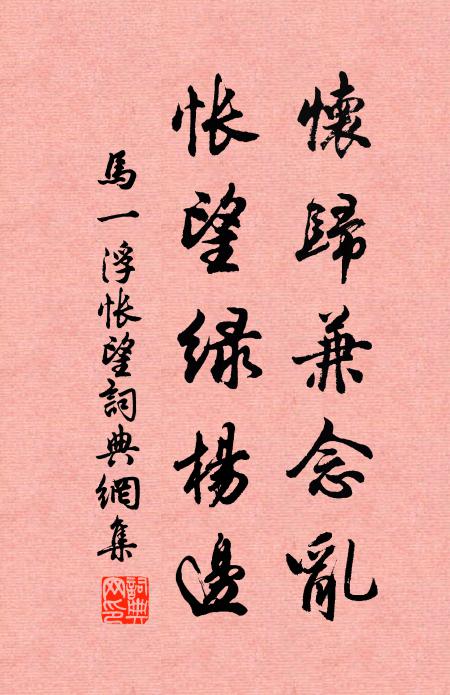 懷歸兼念亂
悵望緑楊邊
馬一浮悵望詞典網集
詞典網